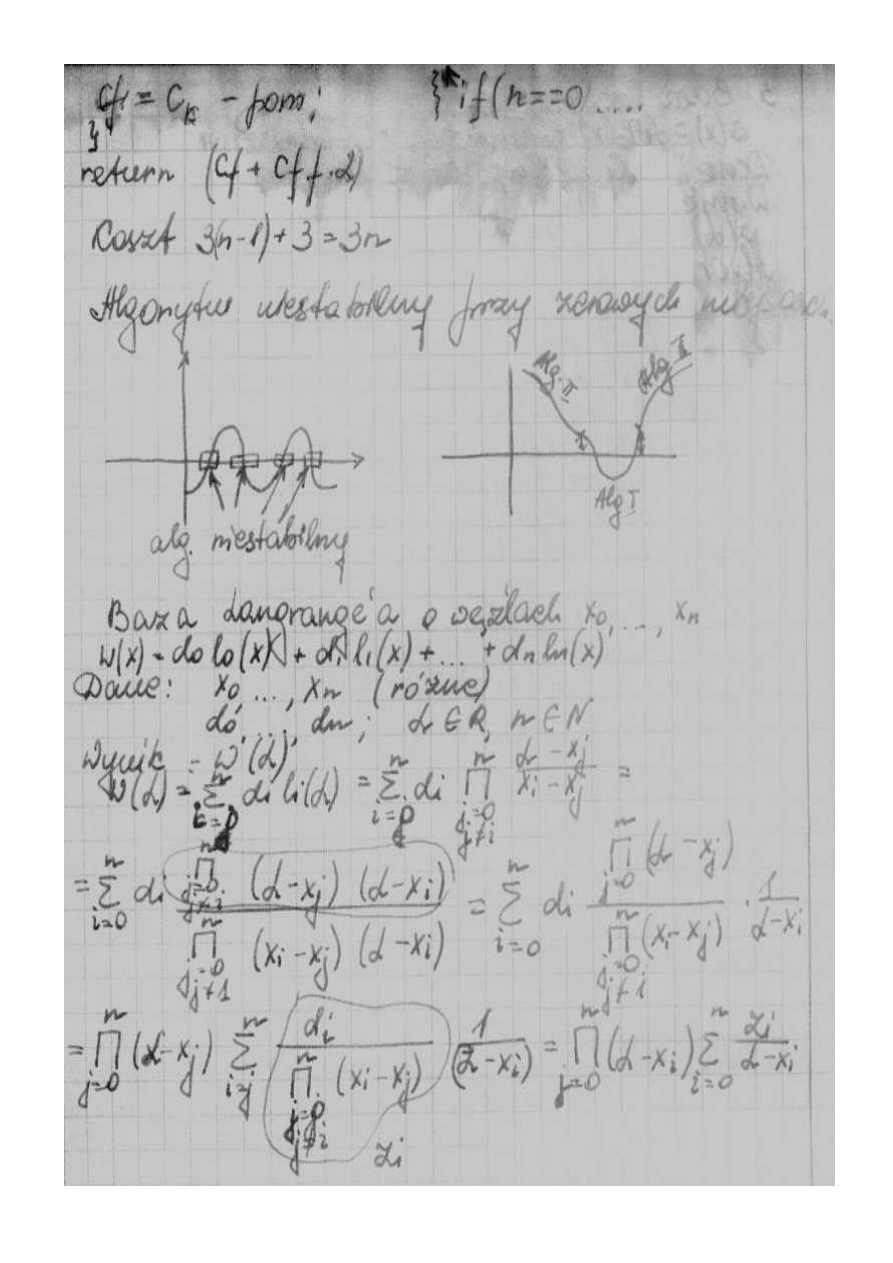 cf = c_k - pom; } if(n==0 .....
}
return (cf + cff·α)
Koszt 3(n-1)+3 = 3n
Algorytm niestabilny przy zerowych
Alg. II Alg II
Alg I
alg. niestabilny
Baza Langrange'a o węzłach x_0, ..., x_n
w(x) = d_0 l_0(x) + d_1 l_1(x) + ... + d_n l_n(x)
Dane: x_0 ..., x_n (różne)
d_0, ..., d_n; α ∈ R, n ∈ N
Wynik : w(α)
w(α) = Σ_{i=0}^{n} d_i l_i(α) = Σ_{i=0}^{n} d_i Π_{j=0, j≠i}^{n} (α - x_j)/(x_i - x_j) =
= Σ_{i=0}^{n} d_i [Π_{j=0, j≠i}^{n} (α - x_j)(α - x_i)] / [Π_{j=0, j≠i}^{n} (x_i - x_j)(α - x_i)] = Σ_{i=0}^{n} d_i [Π_{j=0}^{n} (α - x_j)] / [Π_{j=0, j≠i}^{n} (x_i - x_j)] · 1/(α - x_i)
= Π_{j=0}^{n} (α - x_j) Σ_{i=j}^{n} d_i / [Π_{j=0, j≠i}^{n} (x_i - x_j)] · 1/(α - x_i) = Π_{j=0}^{n} (α - x_i) Σ_{i=0}^{n} z_i/(α - x_i)
z_i